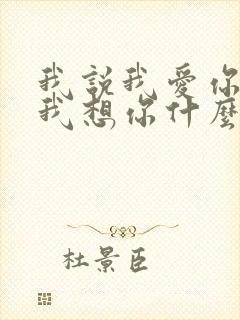 我說我愛你
我想你什麼
杜景臣